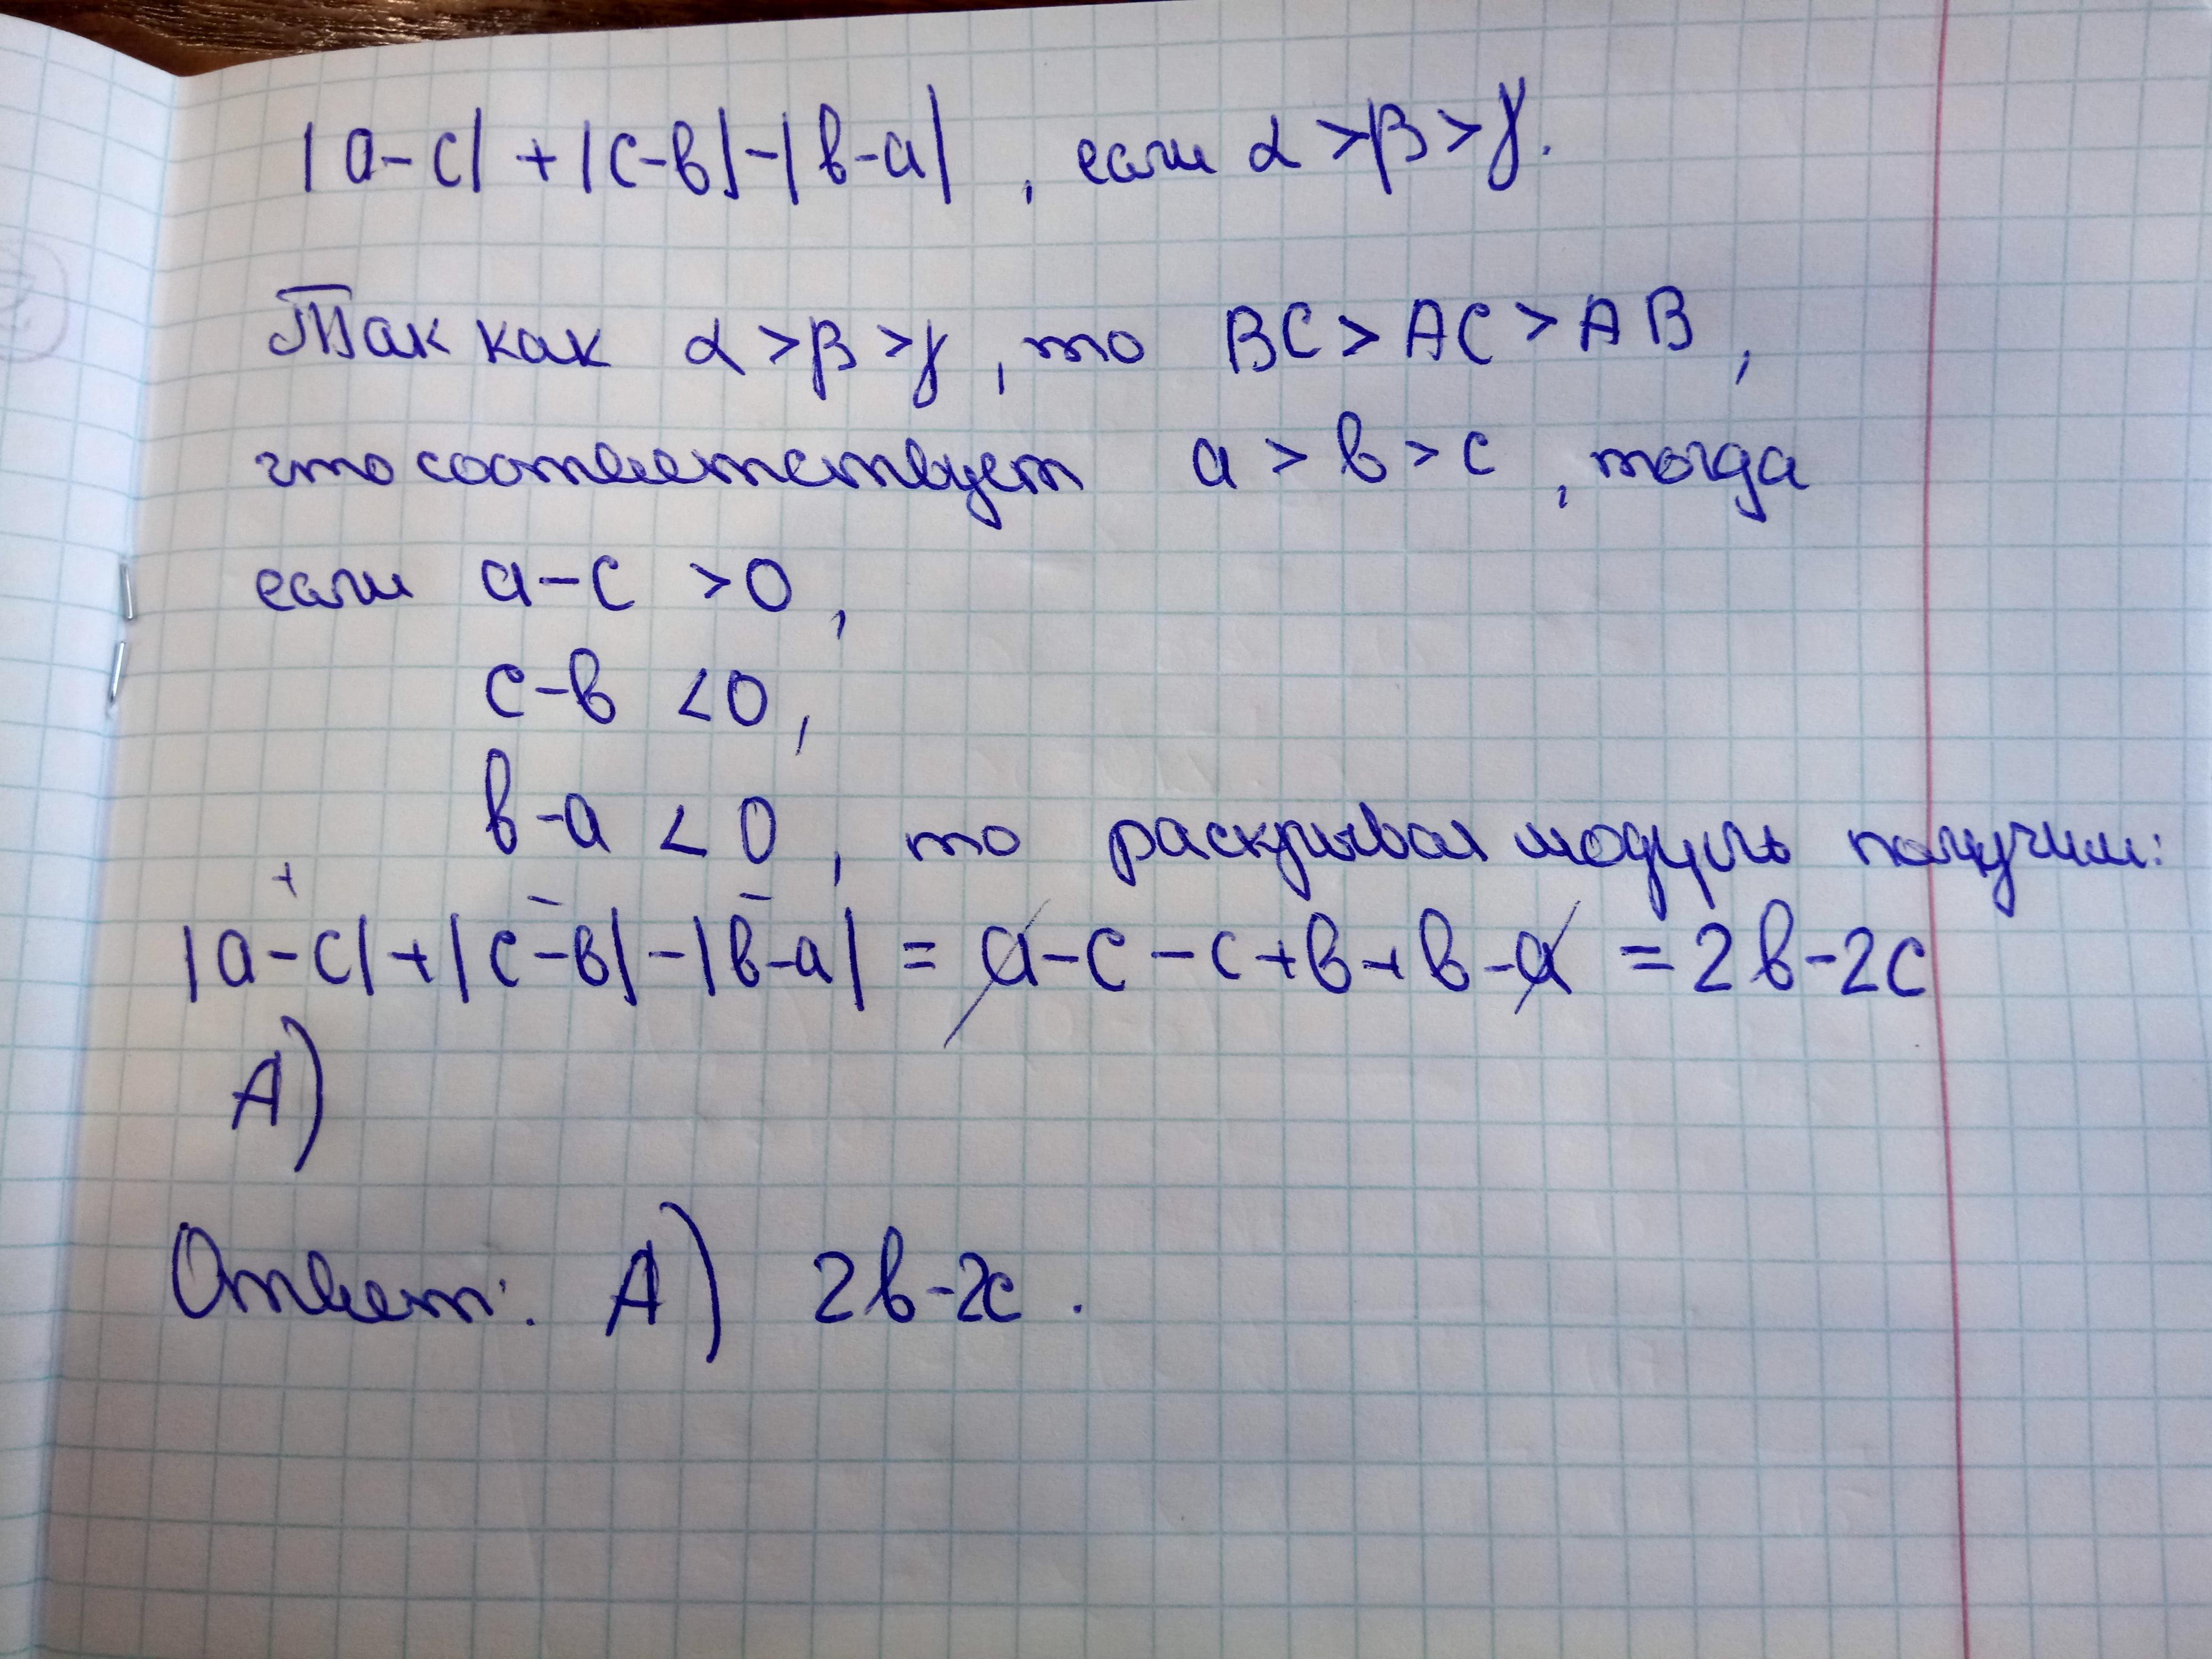 |a-c|+|c-в|-|в-a|, если α>β>γ.
Так как α>β>γ, то BC>AC>AB,
что соответствует a>в>c, тогда
если a-c >0,
c-в <0,
в-a <0, то раскрывая модуль получим:
+ - -
|a-c|+|c-в|-|в-a| = a-c-c+в+в-a = 2в-2c
A)
Ответ: A) 2в-2c.